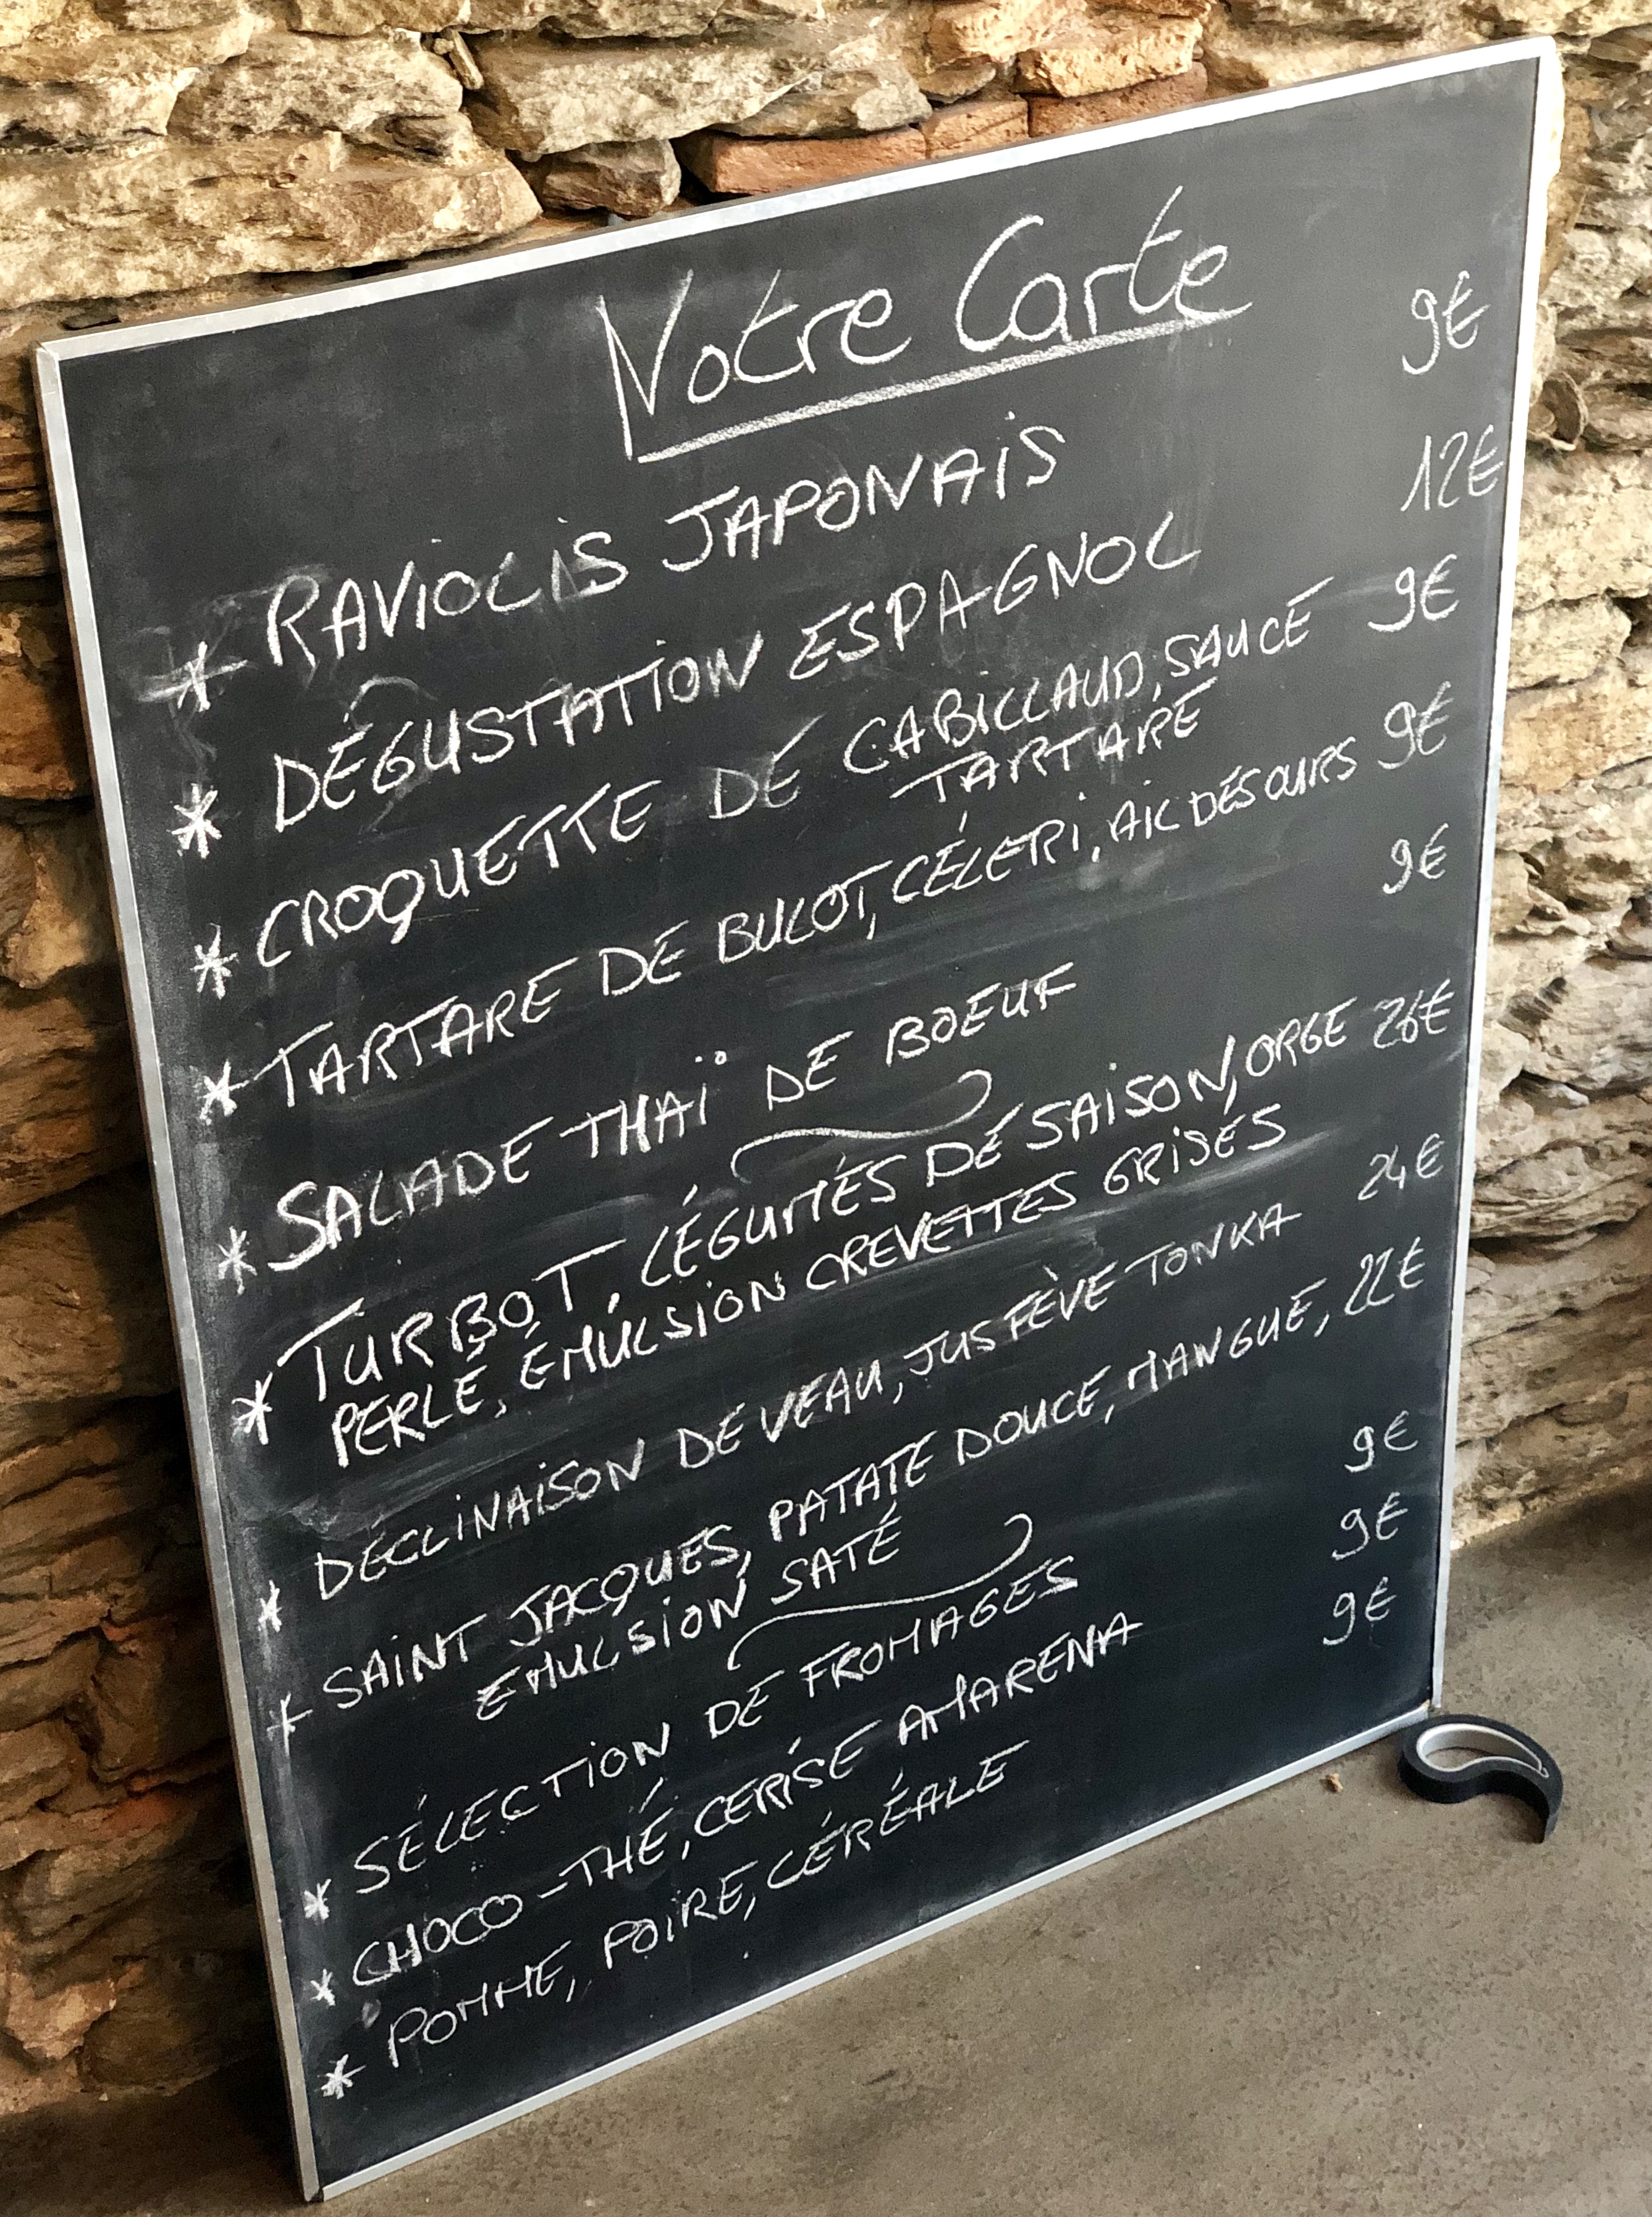 Notre Carte
* RAVIOLIS JAPONAIS 9€
* DÉGUSTATION ESPAGNOL 12€
* CROQUETTE DE CABILLAUD, SAUCE 9€
TARTARE
* TARTARE DE BULOT, CÉLERI, AIL DES OURS 9€
* SALADE THAÏ DE BOEUF 9€
* TURBOT, LÉGUMES DE SAISON, ORGE 26€
PERLÉ, ÉMULSION CREVETTES GRISES
* DÉCLINAISON DE VEAU, JUS FÈVE TONKA 24€
* SAINT JACQUES, PATATE DOUCE, MANGUE, 22€
EMULSION SATÉ
* SÉLECTION DE FROMAGES 9€
* CHOCO-THÉ, CERISE AMARENA 9€
* POMME, POIRE, CÉRÉALE 9€